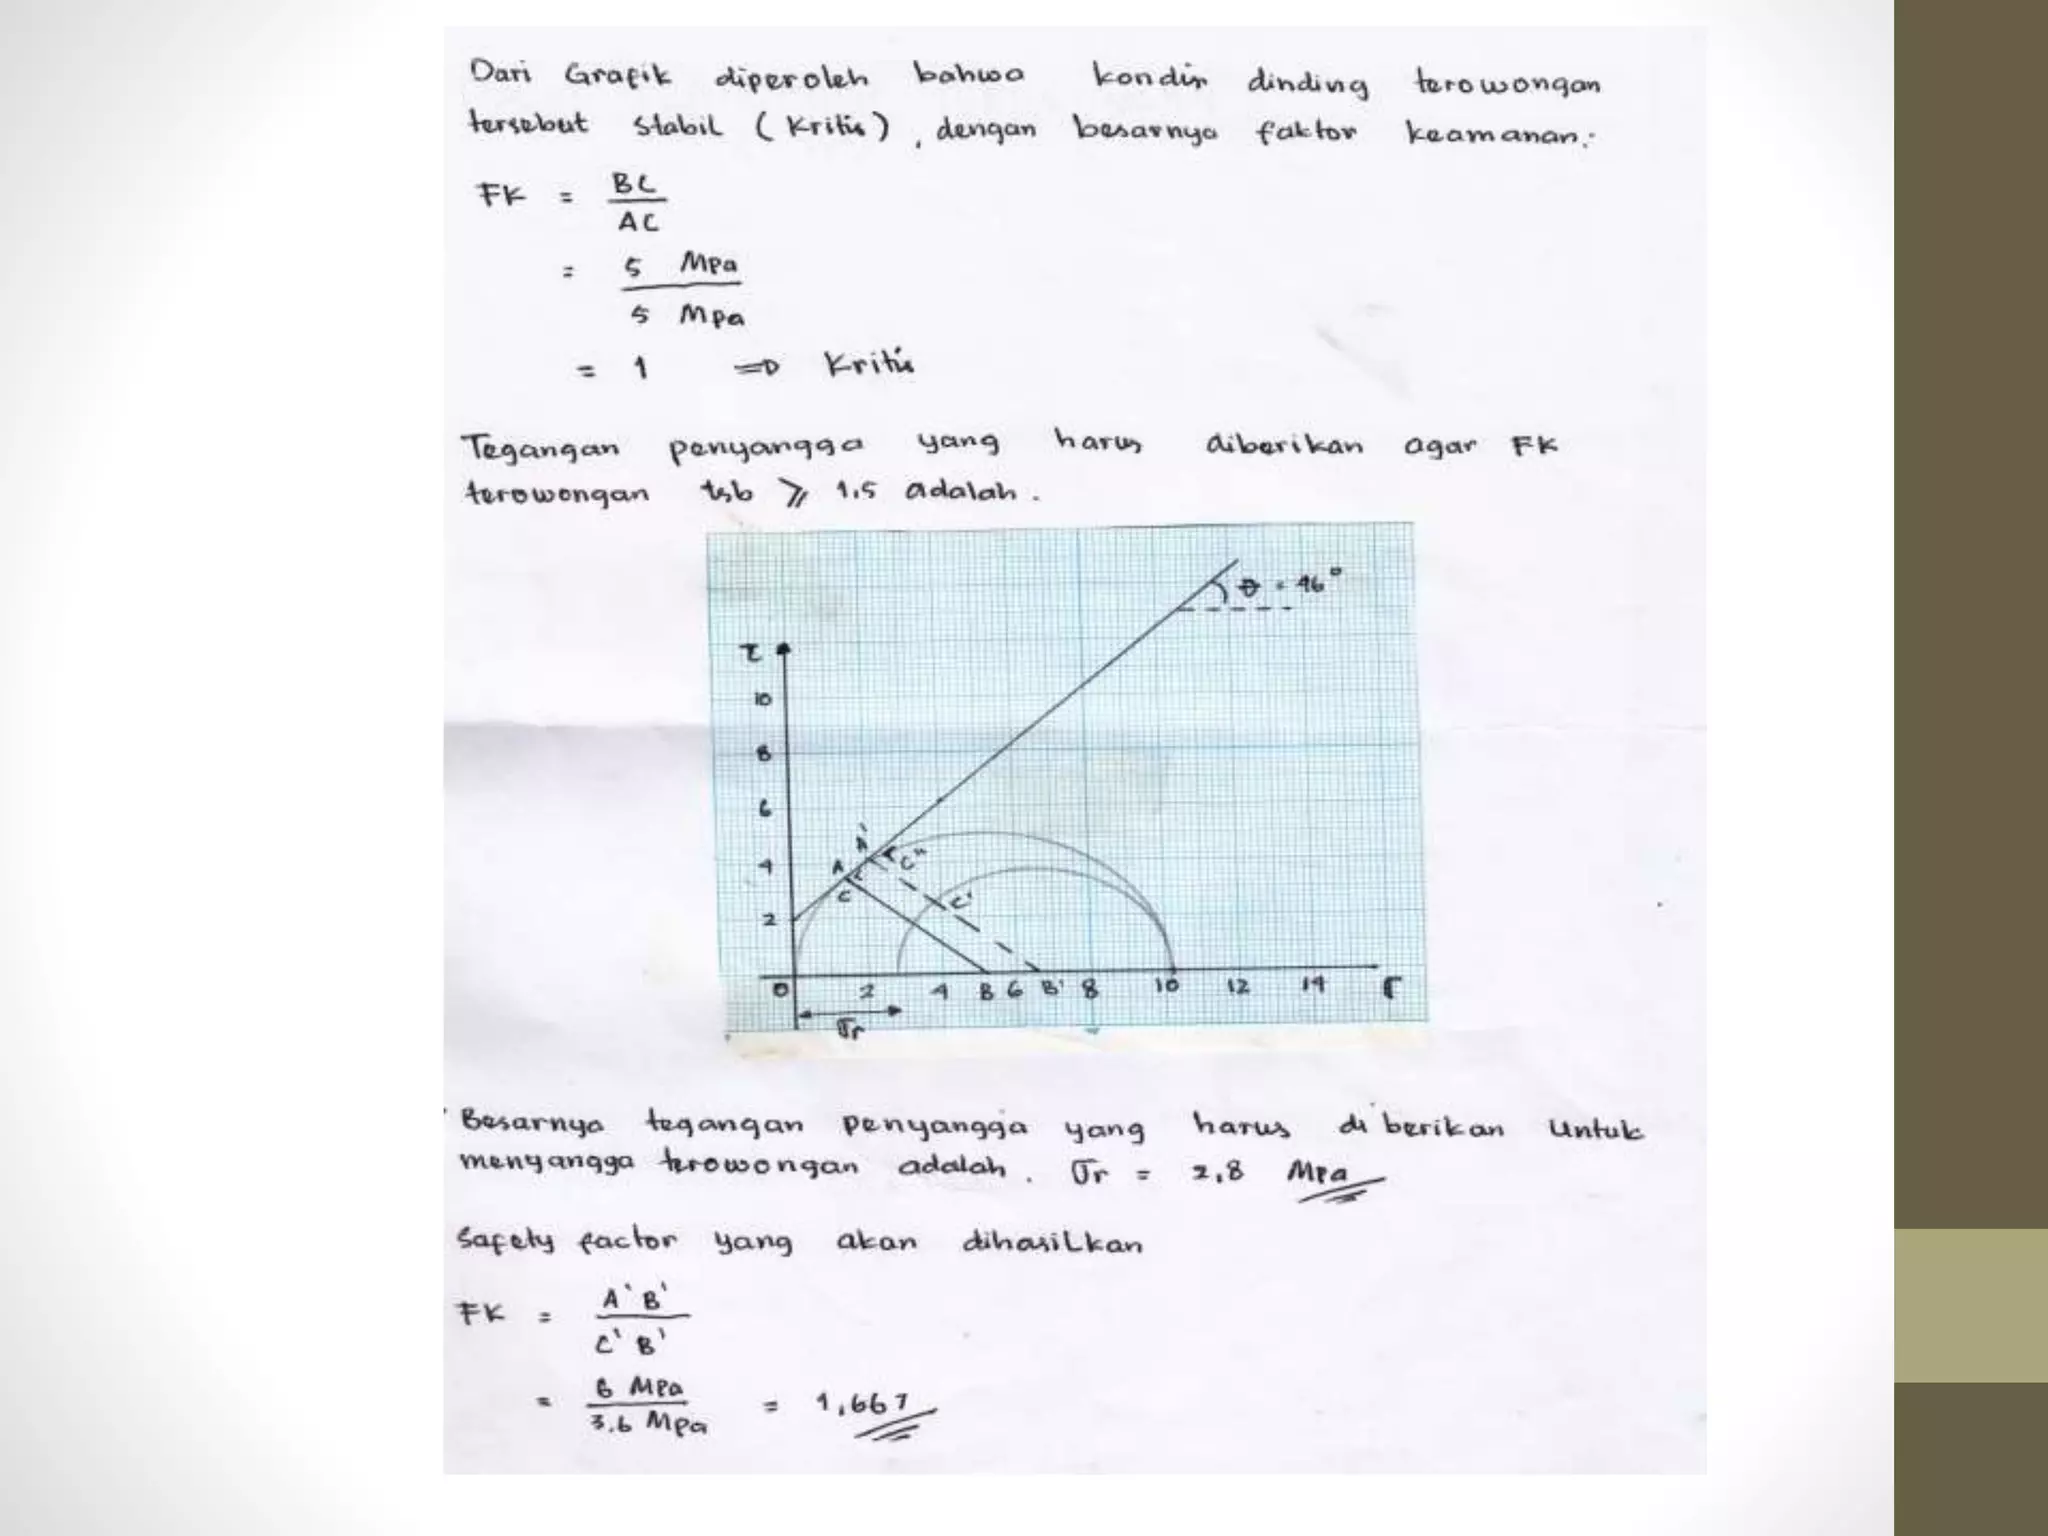 Dari Grafik diperoleh bahwa kondisi dinding terowongan
tersebut stabil (Kritis), dengan besarnya faktor keamanan:
FK = BC
AC
= 5 MPa
5 Mpa
= 1 ⇒ Kritis
Tegangan penyangga yang harus diberikan agar FK
terowongan tsb ⩾ 1,5 adalah.
θ = 46°
τ
10
8
6
4
2
A' C"
A C C'
0 2 4 B 6 B' 8 10 12 14 σ
σr
Besarnya tegangan penyangga yang harus diberikan untuk
menyangga terowongan adalah. σr = 2,8 MPa
Safety factor yang akan dihasilkan
FK = A'B'
C'B'
= 6 MPa
3.6 MPa
= 1,667